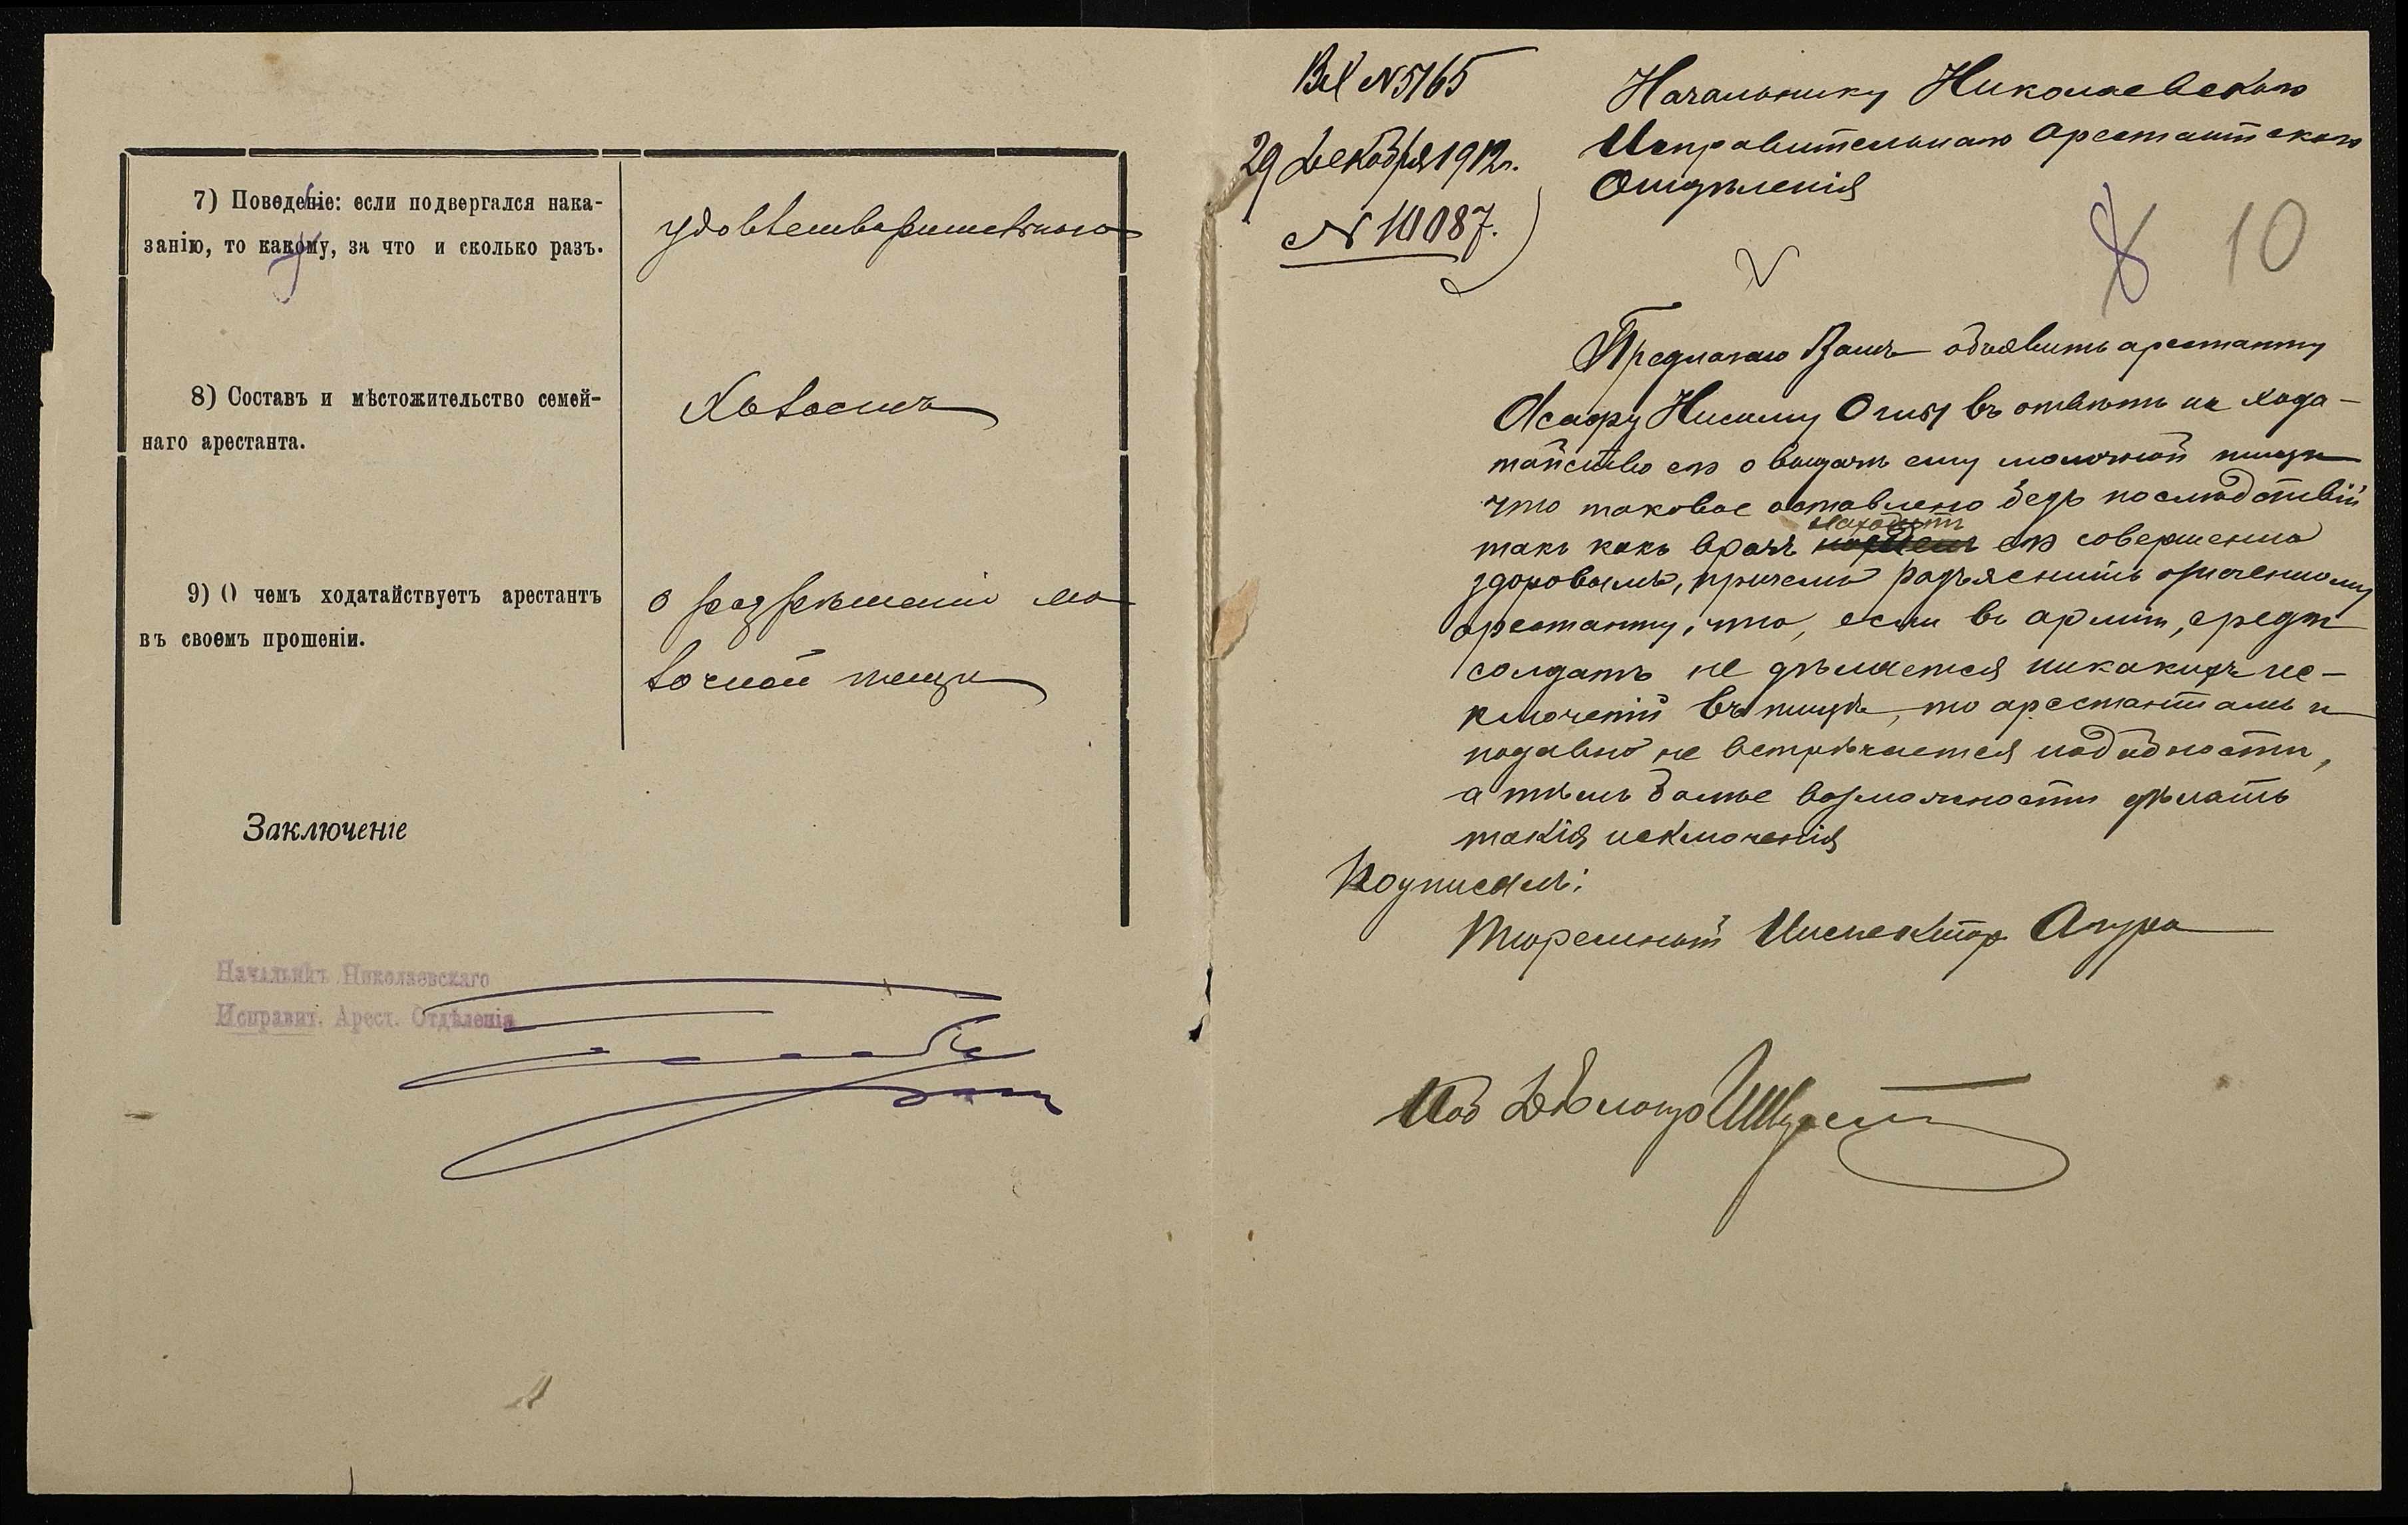 7) Поведеніе: если подвергался нака-
занію, то какому, за что и сколько разъ.
удовлетворительнаго
8) Составъ и мѣстожительство семей-
наго арестанта.
Холостъ
9) О чемъ ходатайствуетъ арестантъ
въ своемъ прошеніи.
о разрѣшеніи мо
лочной пищи
Заключеніе
Начальникъ Николаевскаго
Исправит. Арест. Отдѣленія
Вх № 5165
29 Декабря 1912 г.
№ 10087.
Начальнику Николаевскаго
Исправительнаго Арестантскаго
Отдѣленія
8 10
Предлагаю Вамъ объявить арестанту
Асафу Нисиму Оглы въ отвѣтъ на хода-
тайство его о выдачѣ ему молочной пищи
что таковое оставлено безъ послѣдствій
находитъ
такъ какъ врачъ его совершенно
здоровымъ, причемъ разъяснить означенному
арестанту, что, если въ арміи, среди
солдатъ не дѣлается никакихъ ис-
ключеній въ пищѣ, то арестантамъ и
подавно не встрѣчается надобности,
а тѣмъ болѣе возможности дѣлать
такія исключенія
Подписалъ:
Тюремный Инспекторъ
Дѣлопр